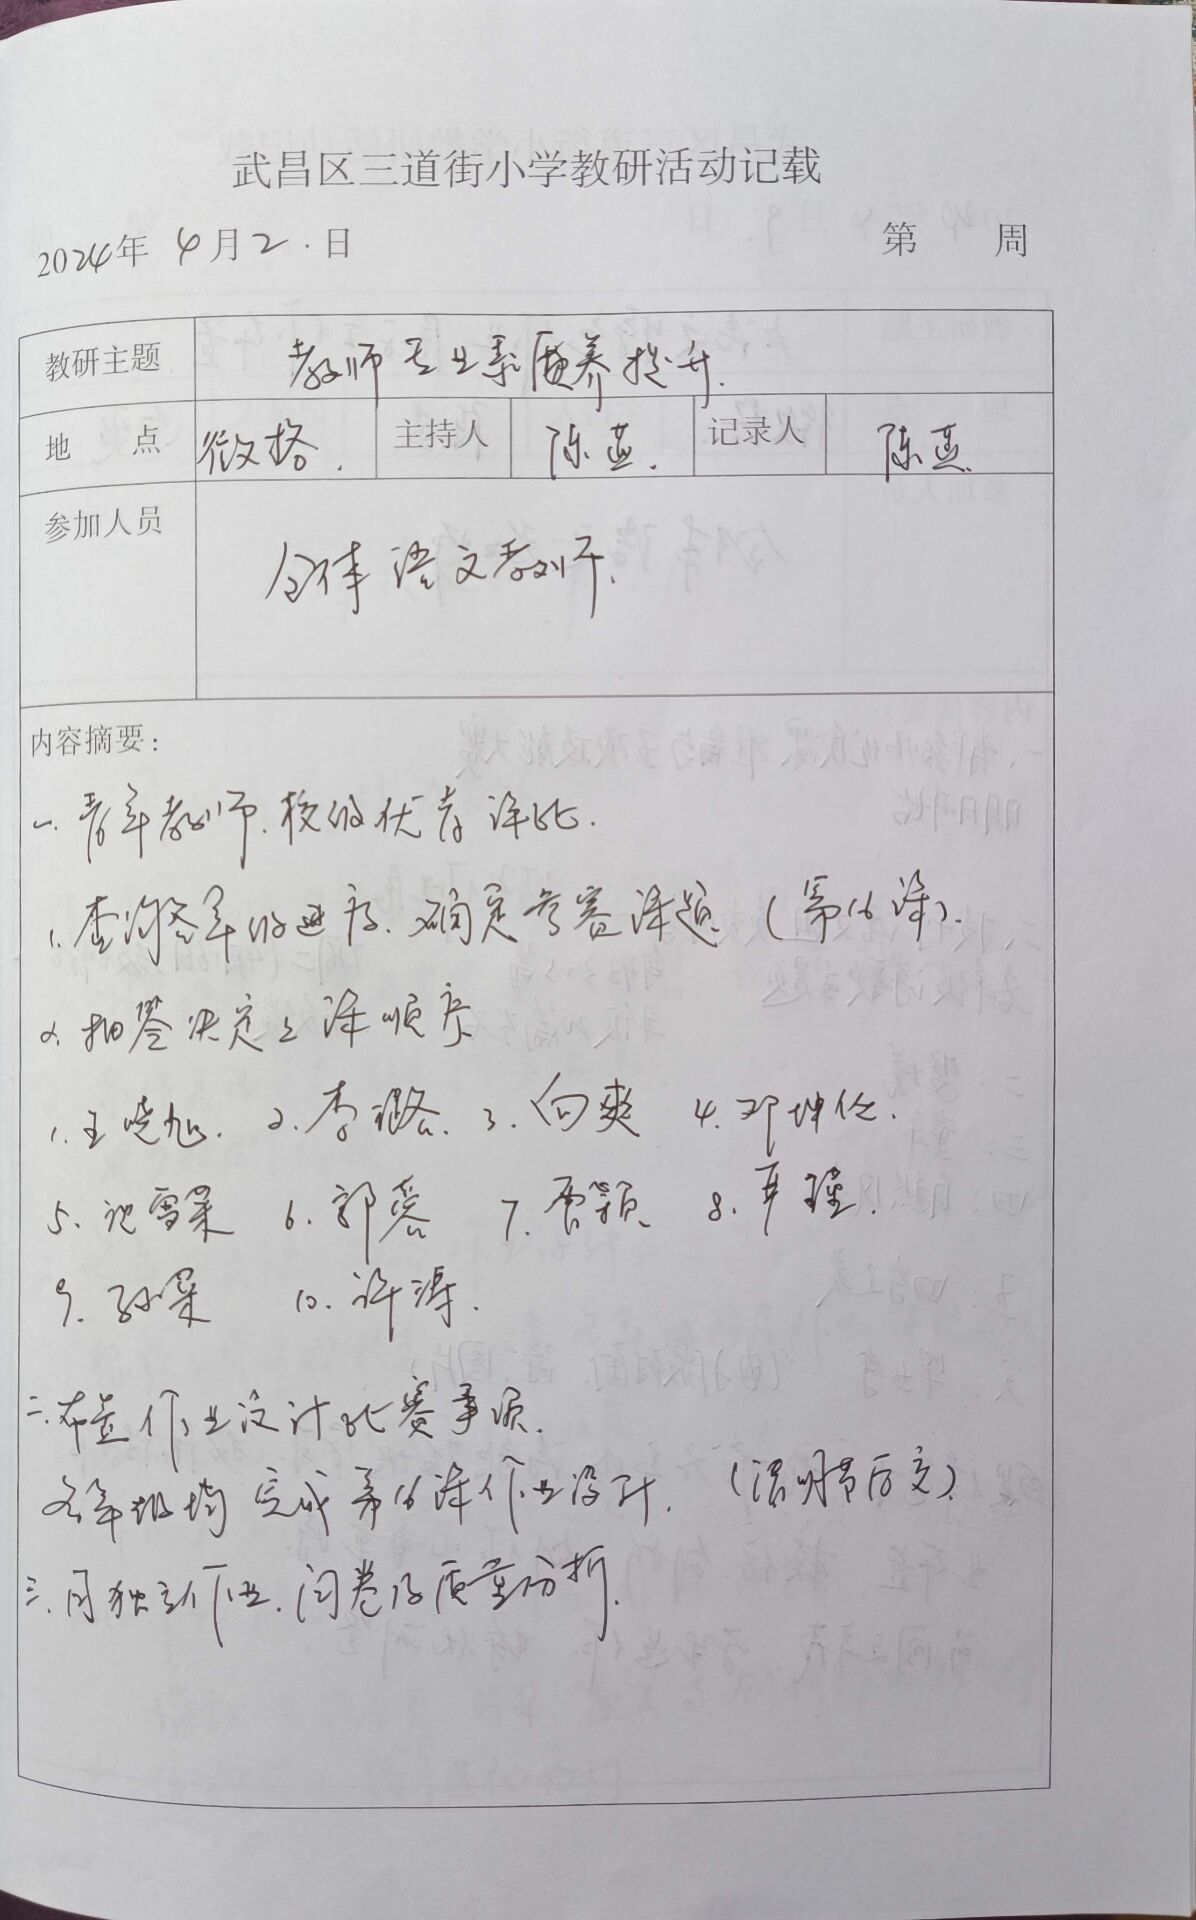 武昌区三道街小学教研活动记载
2024年 4月2.日 第 周
教研主题 教师专业素质养提升.
地 点 微格. 主持人 陈燕. 记录人 陈燕
参加人员 全体语文教师.
内容摘要:
一. 青年教师.校级优青评比.
1. 查询各年级进度.确定参赛课题.(第16课).
2. 抽签决定上课顺序
1. 王晓旭. 2. 李璐. 3. 向爽 4. 邓坤伦.
5. 池雪果 6. 郭蓉 7. 詹颖. 8. 严瑾.
9. 孙果 10. 许涛.
二.布置作业设计比赛事项.
各年级均完成第16课作业设计. (清明节后交).
三.月独立作业.问卷及质量分析.